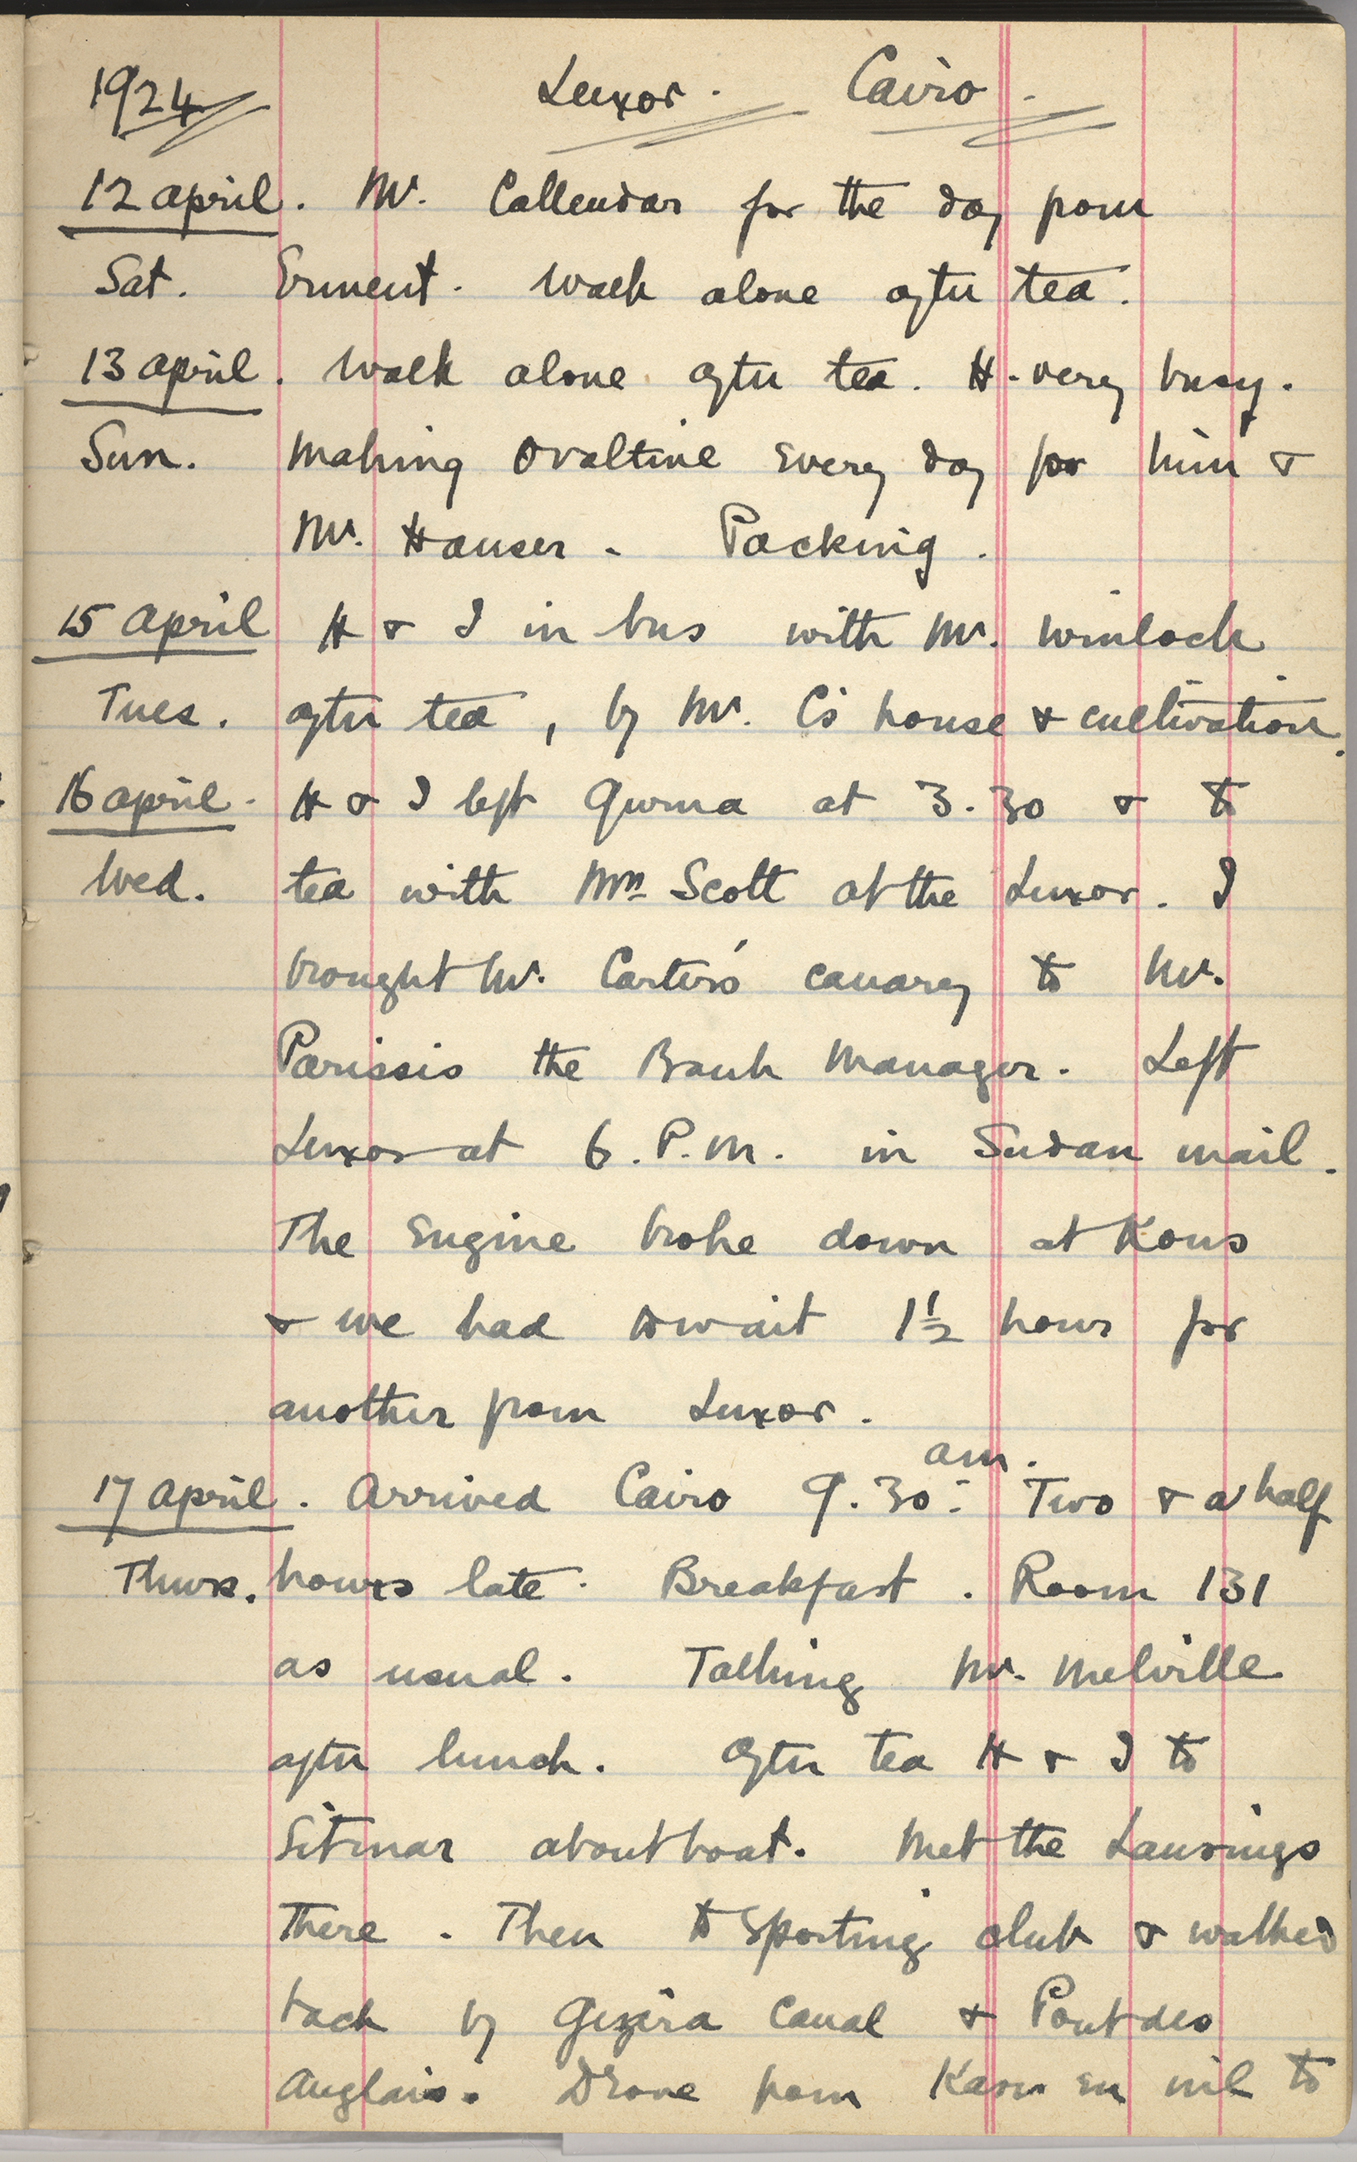 1924 Luxor. Cairo.
12 april. Mr. Callendar for the day from
Sat. Erment. Walk alone after tea.
13 april. Walk alone after tea. H. very busy.
Sun. Making Ovaltine every day for him &
Mr. Hauser. Packing.
15 april H & I in bus with Mr. Winlock
Tues. after tea, by Mr. C's house & cultivation.
16 april. H & I left Qurna at 3.30 & to
Wed. tea with Mrs Scott at the Luxor. I
brought Mr. Carter's canary to Mr.
Parissis the Bank Manager. Left
Luxor at 6. P.M. in Sudan mail.
The engine broke down at Kous
& we had to wait 1½ hours for
another from Luxor.
17 april. Arrived Cairo 9.30 am. Two & a half
Thurs. hours late. Breakfast. Room 131
as usual. Talking Mr. Melville
after lunch. After tea H & I to
Sitmar about boat. Met the Lansings
there. Then to Sporting club & walked
back by Gezira Canal & Pont des
Anglais. Drove from Kasr en nil to